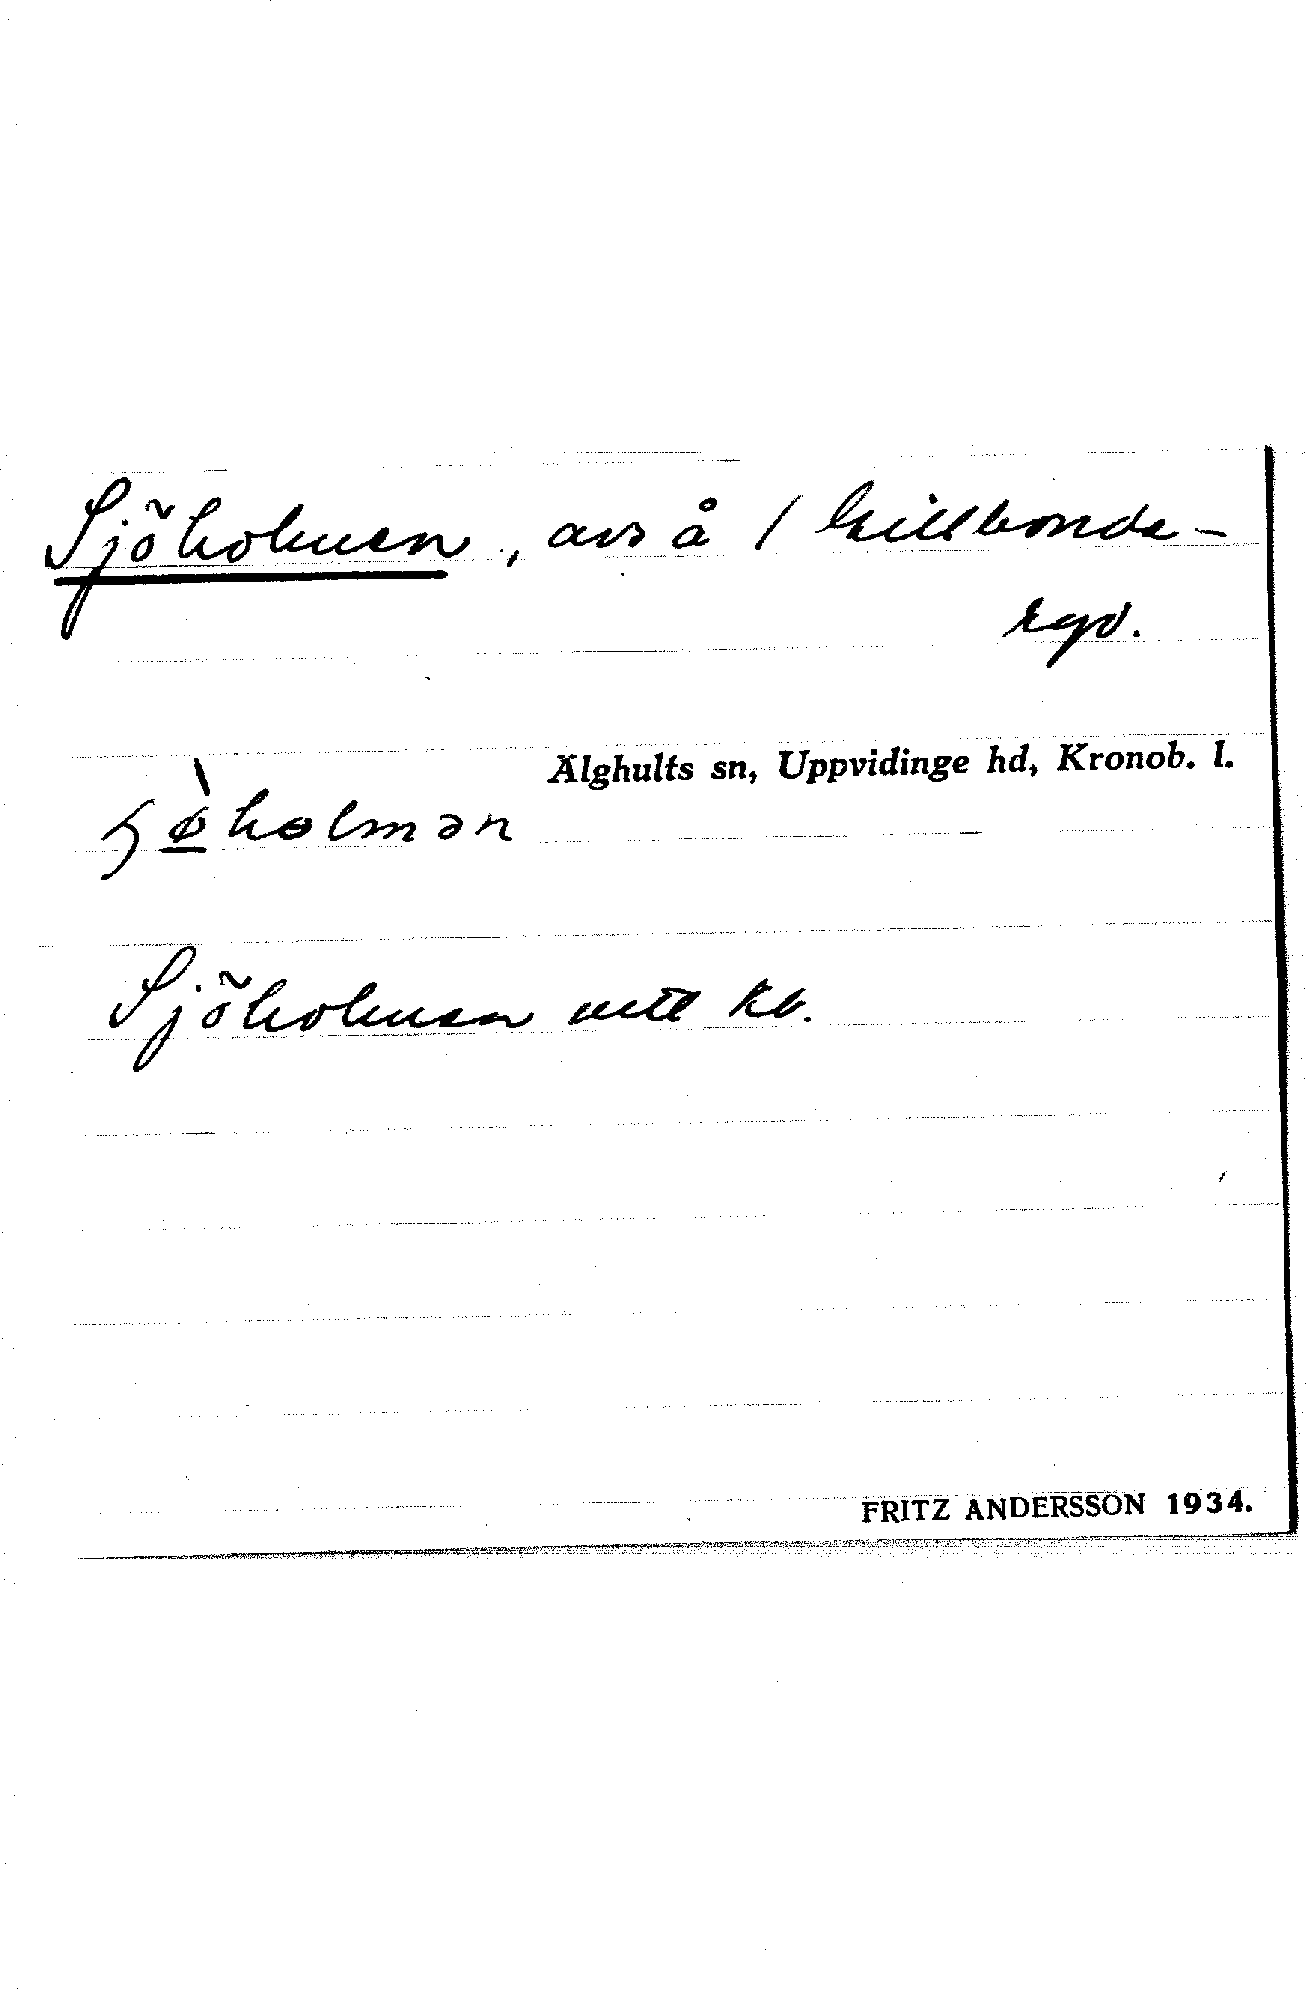 Sjöholmen, avs å / Killbonda-
rgd.
Älghults sn, Uppvidinge hd, Kronob. l.
Sjöholmen uttl kb.
FRITZ ANDERSSON 1934.